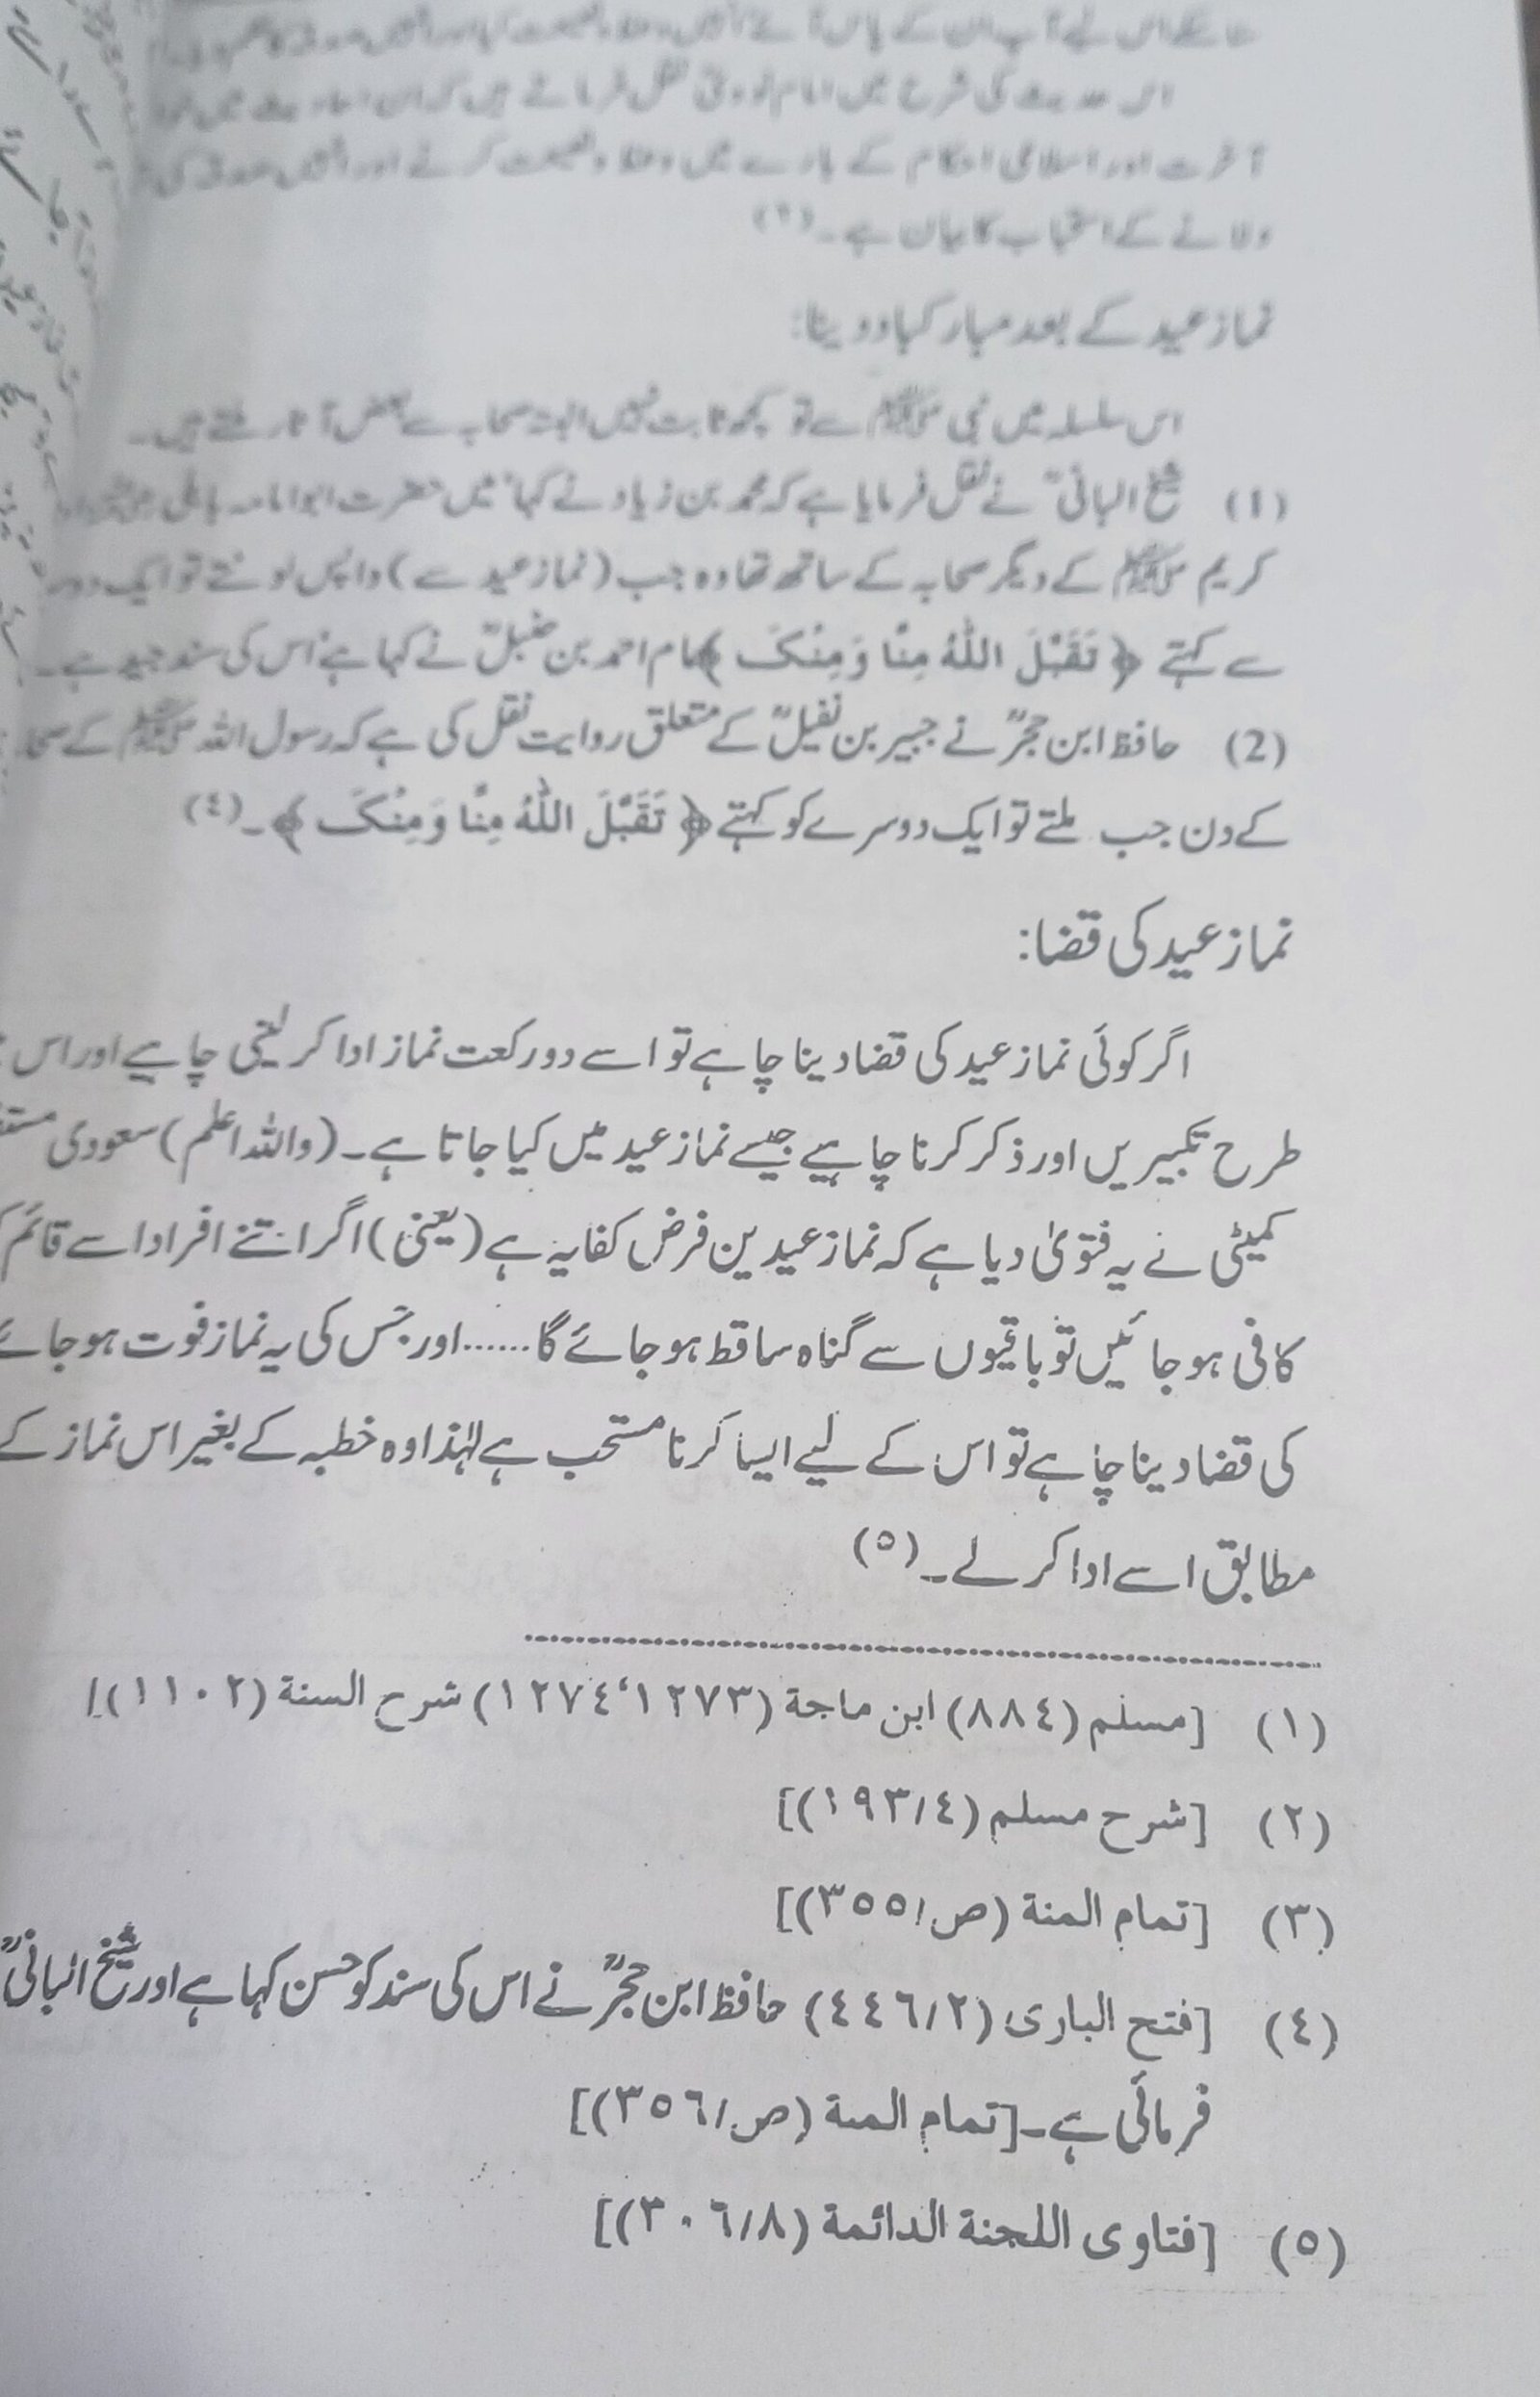 اس حدیث کی شرح میں امام نووی نقل فرماتے ہیں کہ ان احادیث میں
آخرت اور اسلامی احکام کے بارے میں وعظ و نصیحت کرنے اور انہیں صدقہ کی
دلانے کے استحباب کا بیان ہے۔(۲)
نماز عید کے بعد مبارکباد دینا:
اس سلسلہ میں نبی ﷺ سے تو کچھ ثابت نہیں البتہ صحابہ سے بعض آثار ملتے ہیں۔
(1) شیخ البانیؒ نے نقل فرمایا ہے کہ محمد بن زیاد نے کہا میں حضرت ابوامامہ باہلی
کریم ﷺ کے دیگر صحابہ کے ساتھ تھا وہ جب (نماز عید سے) واپس لوٹتے تو ایک
سے کہتے ﴿ تَقَبَّلَ اللّٰهُ مِنَّا وَمِنْكَ ﴾ امام احمد بن حنبلؒ نے کہا ہے اس کی سند جید ہے۔
(2) حافظ ابن حجرؒ نے جبیر بن نفیلؒ کے متعلق روایت نقل کی ہے کہ رسول اللہ ﷺ کے
کے دن جب ملتے تو ایک دوسرے کو کہتے ﴿ تَقَبَّلَ اللّٰهُ مِنَّا وَمِنْكَ ﴾۔(٤)
نماز عید کی قضا:
اگر کوئی نماز عید کی قضا دینا چاہے تو اسے دو رکعت نماز ادا کر لینی چاہیے اور اس
طرح تکبیریں اور ذکر کرنا چاہیے جیسے نماز عید میں کیا جاتا ہے۔ (واللہ اعلم) سعودی
کمیٹی نے یہ فتویٰ دیا ہے کہ نماز عیدین فرض کفایہ ہے (یعنی) اگر اتنے افراد اسے قائم
کافی ہو جائیں تو باقیوں سے گناہ ساقط ہو جائے گا......اور جس کی یہ نماز فوت ہو جائے
کی قضا دینا چاہے تو اس کے لیے ایسا کرنا مستحب ہے لہٰذا وہ خطبہ کے بغیر اس نماز کے
مطابق اسے ادا کر لے۔(٥)
(١) [مسلم (٨٨٤) ابن ماجة (١٢٧٣، ١٢٧٤) شرح السنة (١١٠٢)]
(٢) [شرح مسلم (١٩٣/٤)]
(٣) [تمام المنة (ص/٣٥٥)]
(٤) [فتح الباری (٤٤٦/٢) حافظ ابن حجرؒ نے اس کی سند کو حسن کہا ہے اور شیخ البانیؒ
فرمائی ہے۔[تمام المنة (ص/٣٥٦)]
(٥) [فتاوی اللجنة الدائمة (٣٠٦/٨)]